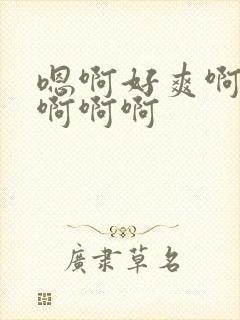 嗯啊好爽啊
啊啊啊
廣隶草名